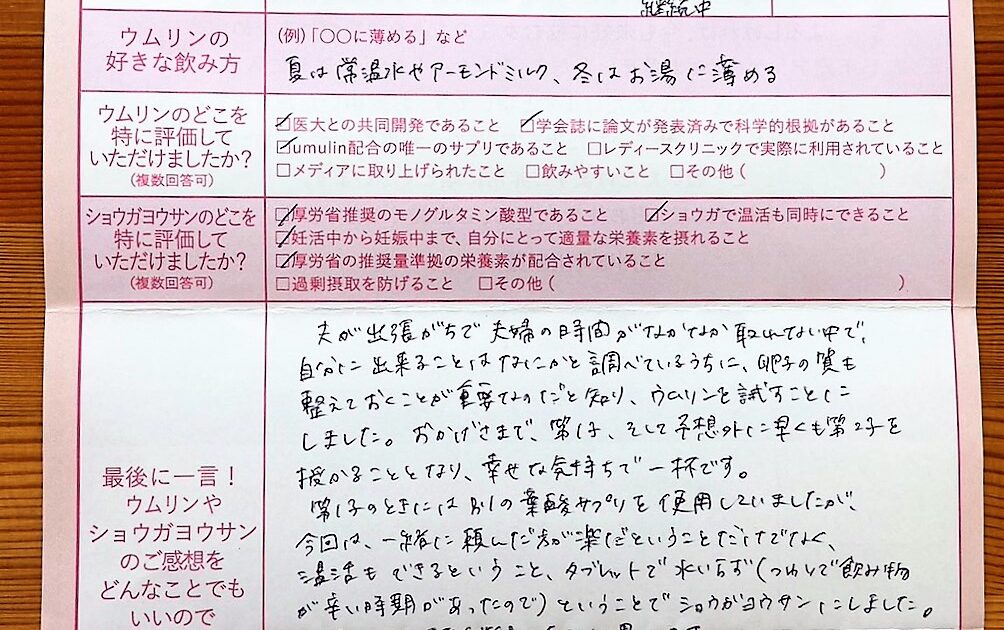 継続中
ウムリンの
好きな飲み方
(例)「〇〇に薄める」など
夏は常温水やアーモンドミルク、冬はお湯に薄める
ウムリンのどこを
特に評価して
いただけましたか?
(複数回答可)
☑医大との共同開発であること ☑学会誌に論文が発表済みで科学的根拠があること
☑umulin配合の唯一のサプリであること □レディースクリニックで実際に利用されていること
□メディアに取り上げられたこと □飲みやすいこと □その他( )
ショウガヨウサンのどこを
特に評価して
いただけましたか?
(複数回答可)
☑厚労省推奨のモノグルタミン酸型であること ☑ショウガで温活も同時にできること
☑妊活中から妊娠中まで、自分にとって適量な栄養素を摂れること
☑厚労省の推奨量準拠の栄養素が配合されていること
□過剰摂取を防げること □その他( )
最後に一言!
ウムリンや
ショウガヨウサン
のご感想を
どんなことでも
いいので
夫が出張がちで夫婦の時間がなかなか取れない中で、
自分に出来ることはなにかと調べているうちに、卵子の質も
整えておくことが重要なのだと知り、ウムリンを試すことに
しました。おかげさまで、第1子、そして予想外に早くも第2子を
授かることとなり、幸せな気持ちで一杯です。
第1子のときには別の葉酸サプリを使用していましたが、
今回は、一緒に頼んだ方が楽だということだけでなく、
温活もできるということ、タブレットで水いらず(つわりで飲み物
が辛い時期があったので)ということでショウガヨウサンにしました。